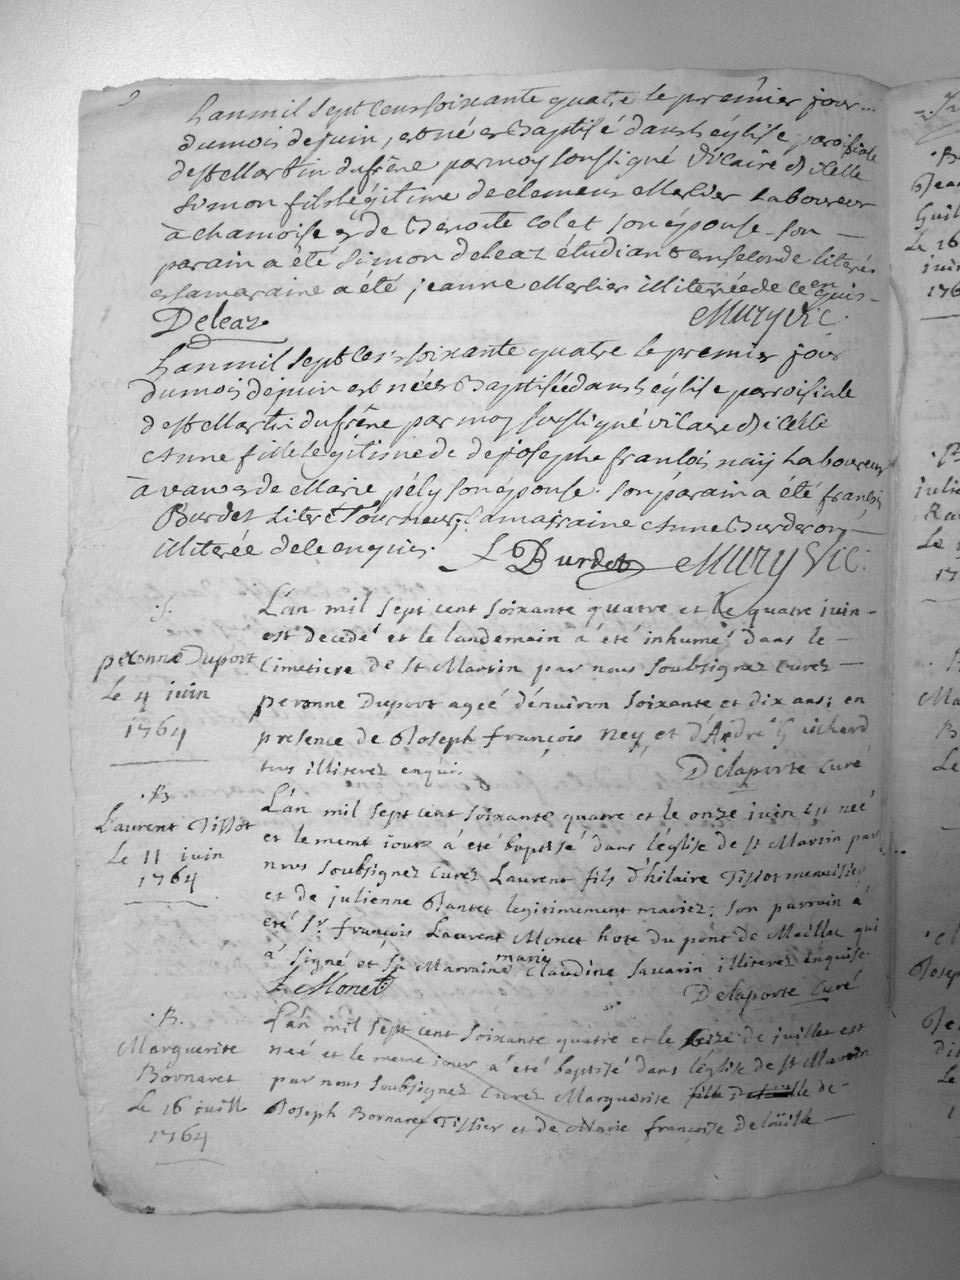 2
Lan mil sept cens soixante quatre le premier jour
du mois de juin, est né et baptisé dans l'églese paroissiale
de st Martin du frêne par moy soussigné vicaire dicelle
Simon fils légitime de clemens Merlier Laboureur
à chamoise et de Benoite Colet son épouse son
parain a été Simon deleaz étudiant en seconde
et sa maraine a été jeanne Merlier illiterée de ce enquis
Deleaz
Mury Vic.
Lan mil sept cens soixante quatre le premier jour
du mois de juin est née et Baptisée dans l'églese parroissiale
de st Martin du frêne par moy soussigné vicaire dicelle
Anne fille légitime de de josephe francois naÿ Laboureur
à et de Marie pély son épouse. son parain a été francois
Burdet et sa marraine Anne Burderon
illiterée de ce enquise.
L Burdet
Mury Vic.
.S.
peronne Duport
Le 4 juin
1764
L'an mil sept cent soixante quatre et le quatre juin
est decedé et le landemain à été inhumé dans le
Cimetiere de St Martin par nous soubsignez Curez
peronne Duport ageé d'environ soixante et dix ans; en
presence de Joseph françois Ney et d'André Guichard
tous illiterez enquis
Delaporte Curé
.B.
Laurent Tissot
Le 11 juin
1764
L'an mil sept cent soixante quatre et le onze juin est neé
et le meme jour à été baptisé dans l'église de st Martin par
nous soubsignez Curez Laurent fils d'hilaire Tissot menuisier
et de julienne Pantet legitimement mariez; son parrain à
eté Sr. françois Laurent Monet hote du pont de Maillac qui
à signé et sa Marraine marie Claudine Savarin illiterez enquise
L Monet
Delaporte Curé
.B.
Marguerite
Bornaret
Le 16 juill
1764
L'an mil sept cent soixante quatre et le seize de juillet est
neé et le meme jour à été baptisé dans l'église de st Martin
par nous soubsignez Curez Marguerite fille de
Joseph Bornaret Tissier et de Marie françoise Delouille